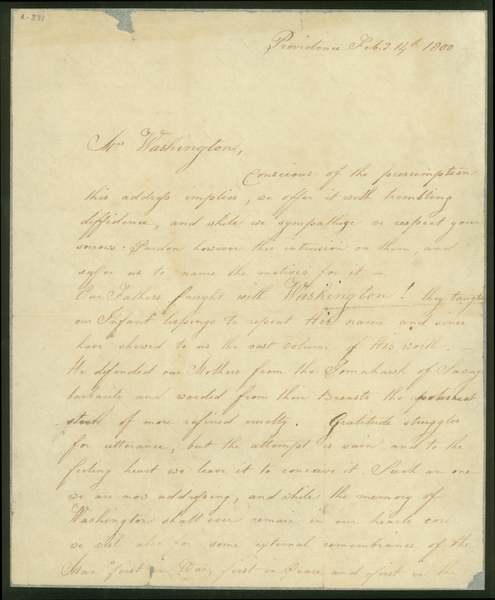 R-831
Providence Feb. 14th 1800
Mrs Washington,
Conscious of the presumption
this address implies, we offer it with trembling
diffidence, and while we sympathize we respect your
sorrows: Pardon however this intrusion on them, and
suffer us to name the motives for it —
Our Fathers fought with Washington! they taught
our Infant lispings to repeat His name and since
have shewed to us the vast volume of His worth.
He defended our Mothers from the Tomahawk of Savage
barbarity and warded from their Breasts the polished
steel of more refined cruelty. Gratitude struggles
for utterance, but the attempt is vain and to the
feeling heart we leave it to conceive it. Such an one
we are now addressing, and while the memory of
Washington shall ever remain in our hearts core
we wish also for some external remembrance of the
Man "first in War, first in Peace and first in the